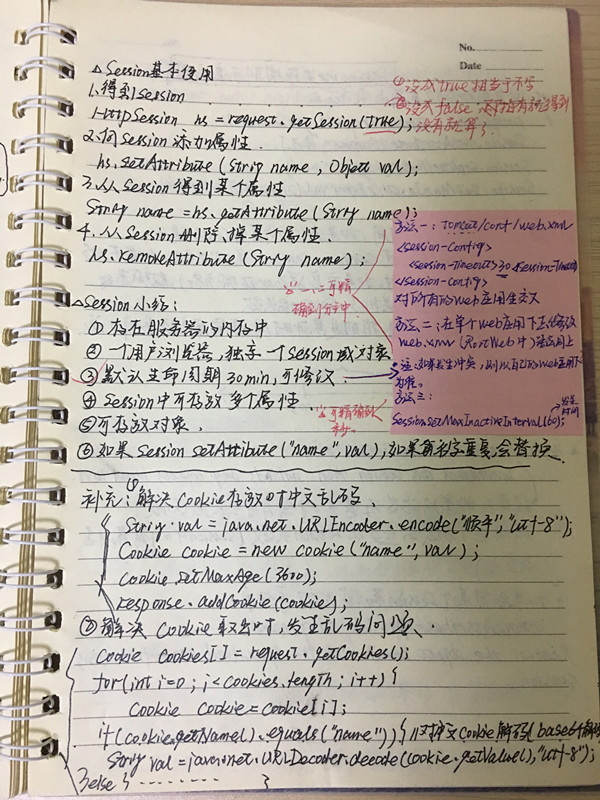 No.
Date
△Session基本使用
1.得到session
HttpSession hs = request.getSession(true);
①没或true相当于不写
②没或false
没有就算了
2.向Session添加属性.
hs.setAttribute(String name, Object val);
3.从Session得到某个属性
String name = hs.getAttribute(String name);
4.从Session删除掉某个属性.
hs.removeAttribute(String name);
方法一:tomcat/conf/web.xml
<session-config>
<session-timeout>30<session-timeout>
</session-config>
对所有的web应用生效
方法二:在单个web应用下去修改
web.xml
注:如果发生冲突,则以自己的web应用下
为准。
方法三:
Session setMaxInactiveInterval(60);
发呆
时间
一、二可精
确到分钟中
三可精确到
秒.
△Session小结:
①存在服务器的内存中
②一个用户浏览器,独享一个Session域对象
③默认生命周期30min,可修改.
④Session中可存放多个属性.
⑤可存放对象.
⑥如果Session setAttibute("name",val),如果名字重复,会替换.
补充:①解决Cookie存放时中文乱码.
String val = java.net.URLEncoder.encode("顺平","utf-8");
Cookie cookie = new cookie("name",val);
cookie.setMaxAge(3600);
response.addCookie(cookie);
②解决Cookie取出时,发生乱码问题.
Cookie cookies[] = request.getCookies();
for(int i=0; i<cookies.length; i++){
Cookie cookie = cookie[i];
if(cookie.getName().equals("name")){ //对中文Cookie解码(base64解码
String val = java.net.URLDecoder.decode(cookie.getValue(),"utf-8");
}else{ ········ }